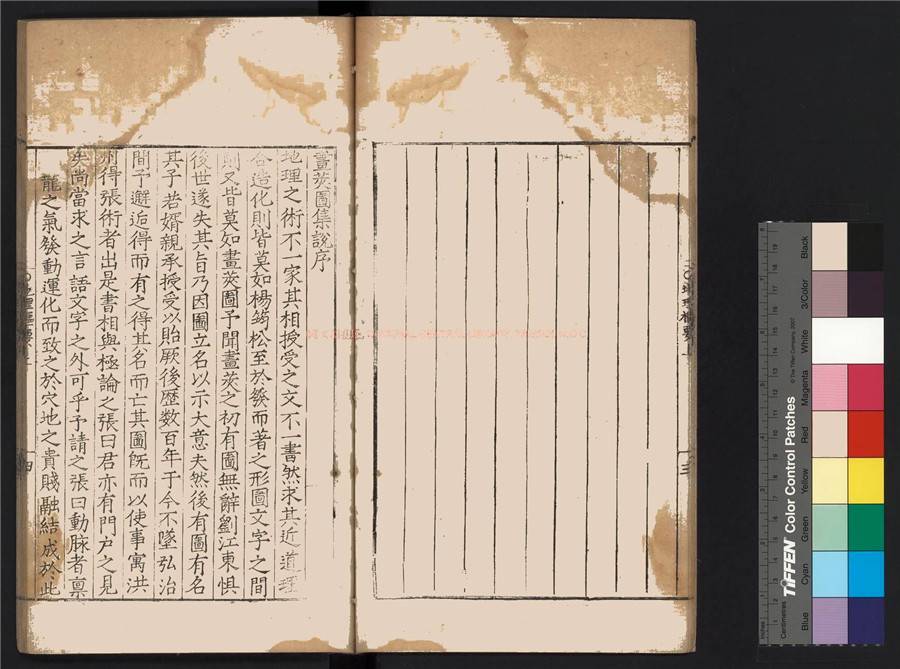 畫莢圖集說序
地理之術不一家其相授受之文不一書然求其近道理
合造化則皆莫如楊筠松至於發而著之形圖文字之間
則又皆莫如畫莢圖予聞畫莢之初有圖無辭劉江東懼
後世遂失其旨乃因圖立名以示大意夫然後有圖有名
其子若婿親承授受以貽厥後歷數百年于今不墜弘治
間予邂逅得而有之得其名而亡其圖既而以使事寓洪
州得張術者出是書相與極論之張曰君亦有門戶之見
矣尚當求之言語文字之外可乎予請之張曰動脉者禀
龍之氣發動運化而致之於穴地之貴賤融結成於此
四
三
NATIONAL CENTRAL LIBRARY, TAIWAN, R.O.C
TIFFEN Color Control Patches
© The Tiffen Company, 2007
Centimetres
Inches
Blue
Cyan
Green
Yellow
Red
Magenta
White
3/Color
Black